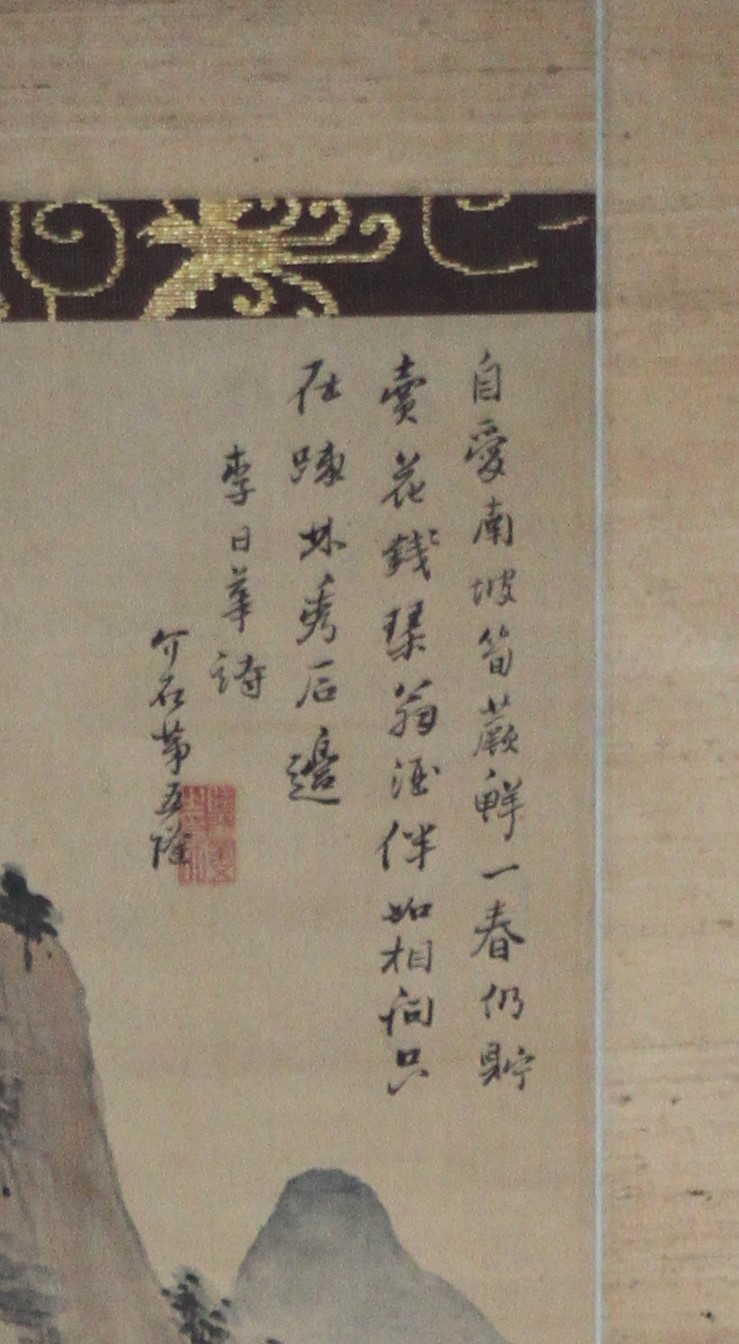 自愛南坡筍蕨鮮一春仍貯
賣花錢琹翁酒伴如相问只
在疎林秀石邉
李日華詩
介石第五隆